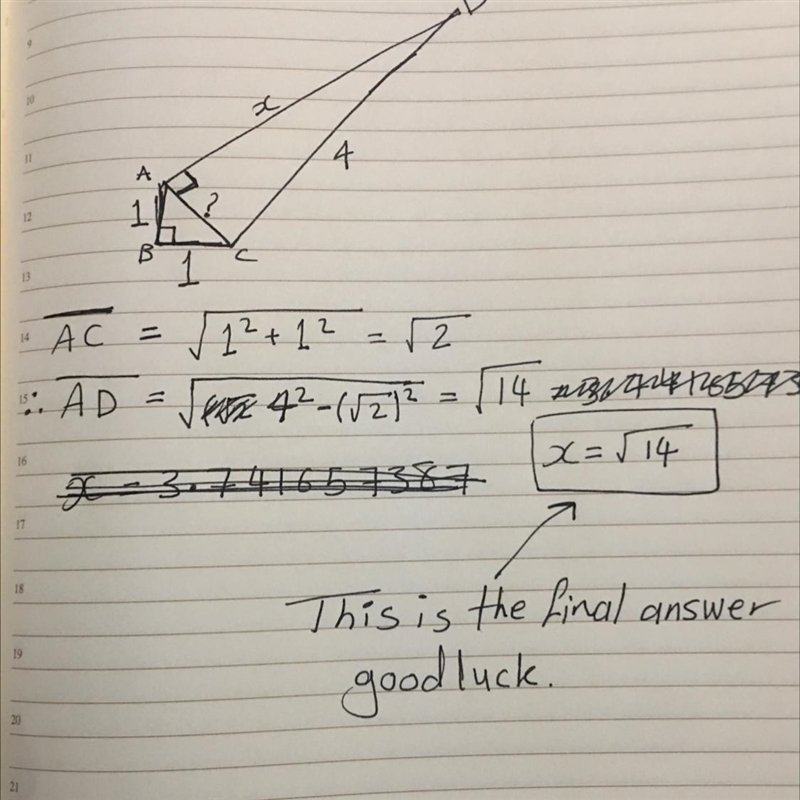 D
9
10
x
11
4
A
?
12
1
B
C
1
13
14 AC = √1² + 1² = √2
15 ∴ AD = √4² - (√2)² = √14
16
x = √14
x = 3.7416573887
17
18
This is the final answer
19
good luck.
20
21